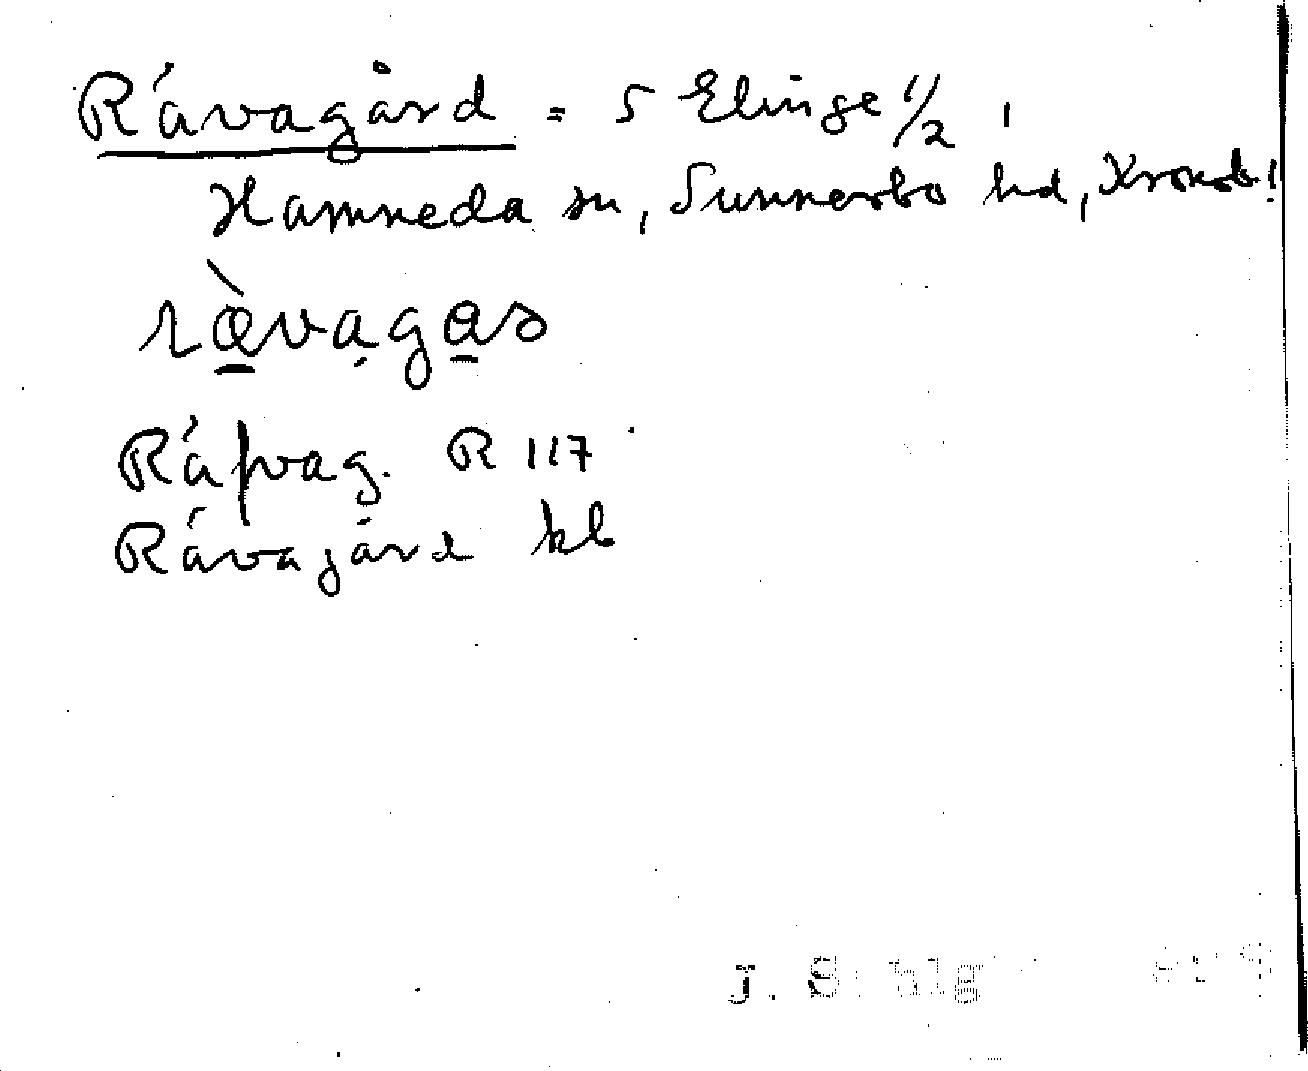 Rävagård = 5 Elinge 1/2 i
Hamneda sn, Sunnerbo hd, Kronob. l
rävagas
Räfvag. R 117
Rävagård kb
J. S